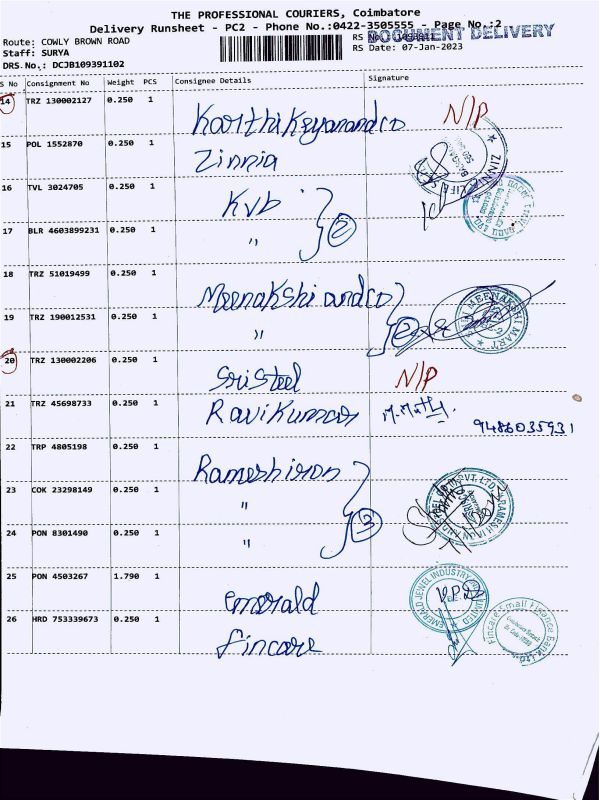 THE PROFESSIONAL COURIERS, Coimbatore
Delivery Runsheet - PC2 - Phone No.:0422-3505555 - Page No.:2
DOCUMENT DELIVERY
Route: COWLY BROWN ROAD
RS No.:
Staff: SURYA
RS Date: 07-Jan-2023
DRS.No.: DCJB109391102
S No Consignment No Weight PCS Consignee Details Signature
14 TRZ 130002127 0.250 1 Karthikeyanandco N/P
15 POL 1552870 0.250 1 Zinnia
16 TVL 3024705 0.250 1 Kvb
17 BLR 4603899231 0.250 1 " 2
18 TRZ 51019499 0.250 1 Meenakshi andco
19 TRZ 190012531 0.250 1 " 2
20 TRZ 130002206 0.250 1 Sri Steel N/P
21 TRZ 45698733 0.250 1 Ravikumar 9486035931
22 TRP 4805198 0.250 1 Ramesh iron
23 COK 23298149 0.250 1 "
24 PON 8301490 0.250 1 " 3
25 PON 4503267 1.790 1 emerald
EMERALD JEWEL INDUSTRY LIMITED
26 HRD 753339673 0.250 1 fincare
Fincare Small Finance Bank Ltd